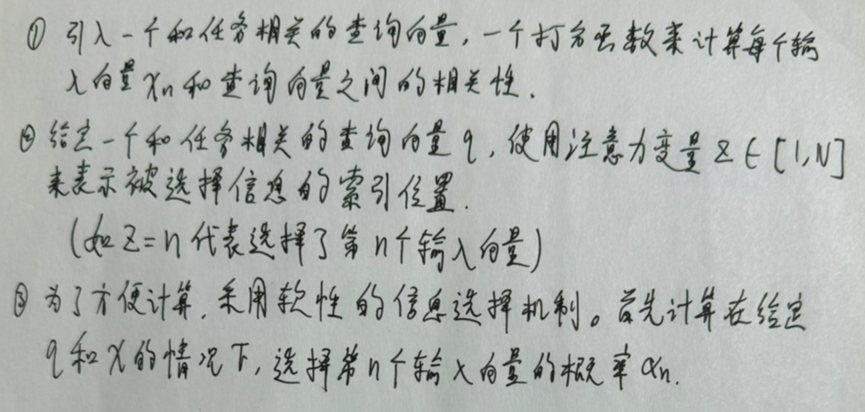 ① 引入一个和任务相关的查询向量,一个打分函数来计算每个输
入向量xn和查询向量之间的相关性.
② 给定一个和任务相关的查询向量q,使用注意力变量z∈[1,N]
来表示被选择信息的索引位置.
(如z=n代表选择了第n个输入向量)
③ 为了方便计算,采用软性的信息选择机制。首先计算在给定
q和x的情况下,选择第n个输入向量的概率αn.